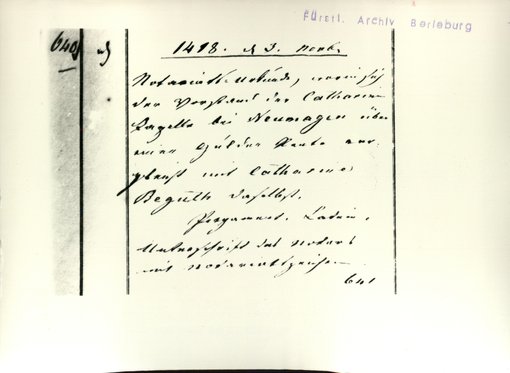 Fürstl. Archiv Berleburg
640
1418. d 3. Novb.
Notariats-Urkunde, worin sich
der Vorstand der Catharinen
Kapelle bei Neumagen über
eine Gulden Rente ver
gleicht mit Catharine
Beguth daselbst.
Pergament. Latein.
Unterschrift des Notars
mit Notariatszeichen
641